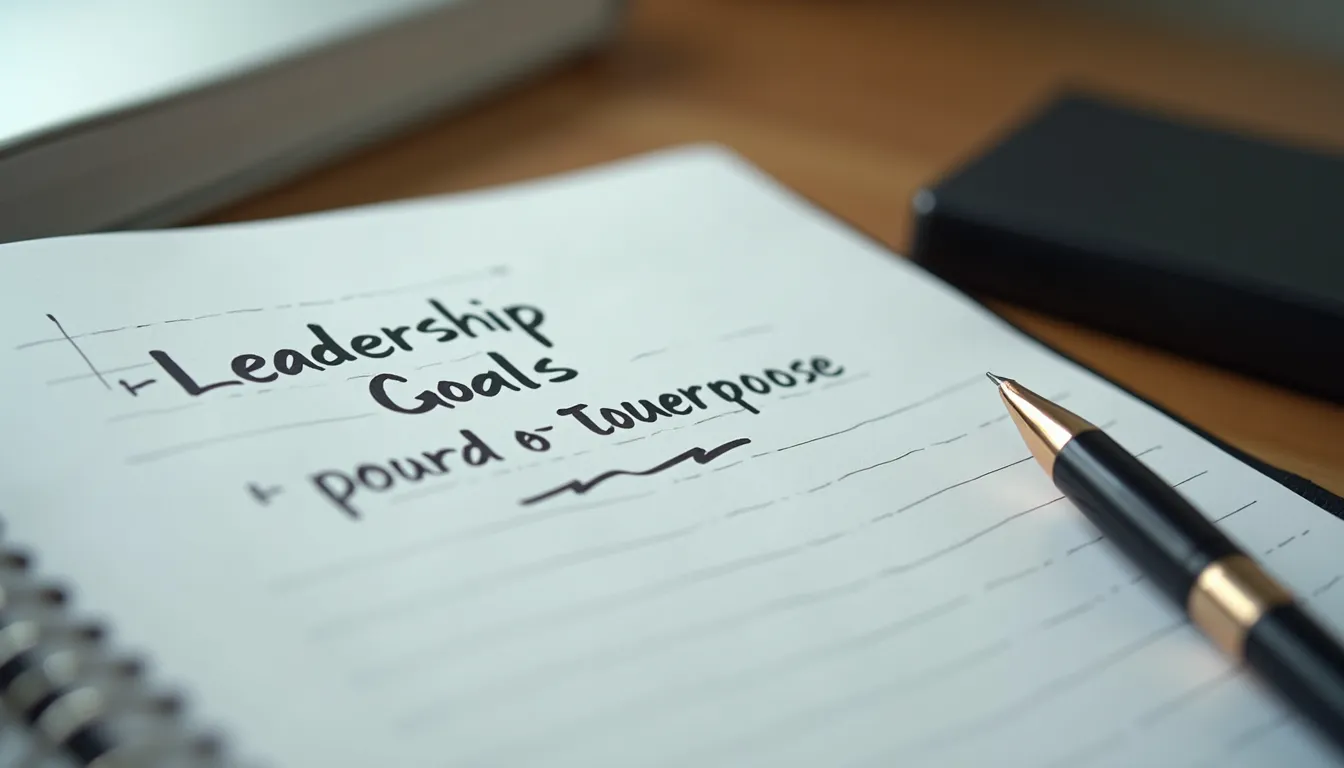 Leadership
Goals
pourd o- Touerpoose